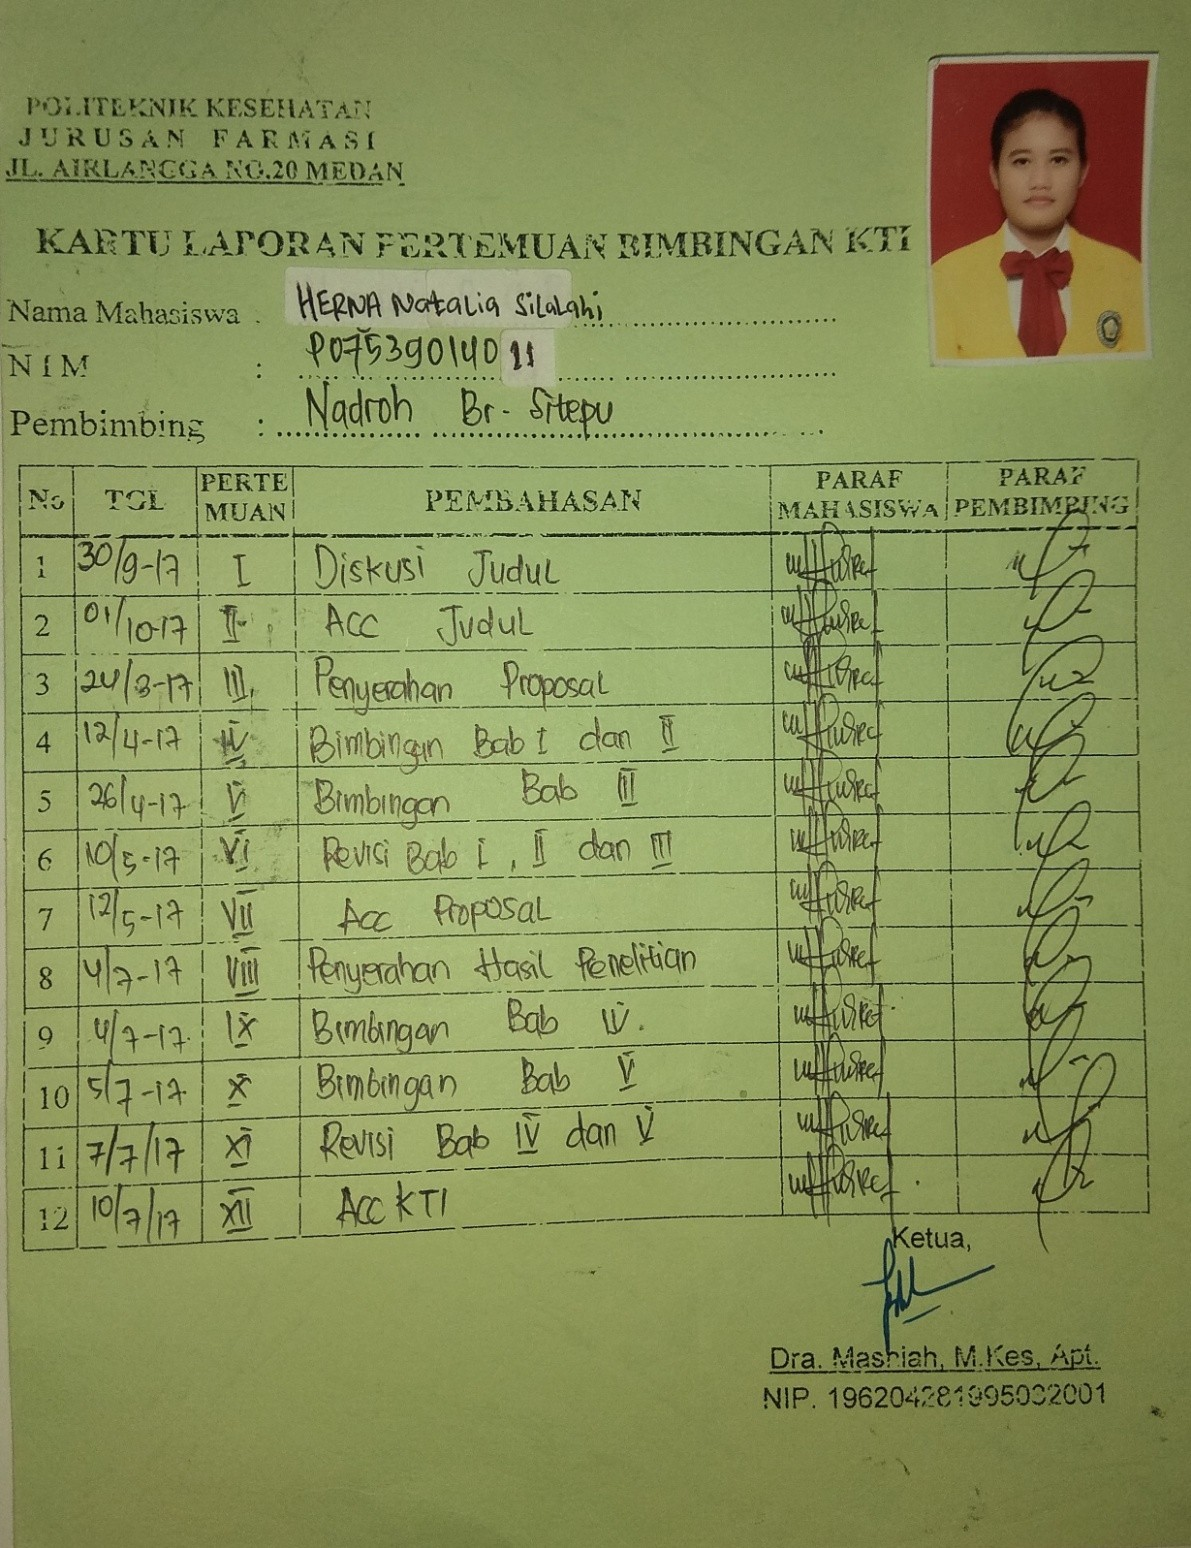 POLITEKNIK KESEHATAN
JURUSAN FARMASI
JL. AIRLANGGA NO.20 MEDAN
KARTU LAPORAN PERTEMUAN BIMBINGAN KTI
Nama Mahasiswa : HERNA Natalia Silalahi
NIM : P07539014011
Pembimbing : Nadroh Br. Sitepu
No TGL PERTEMUAN PEMBAHASAN PARAF MAHASISWA PARAF PEMBIMBING
1 30/9-17 I Diskusi Judul
2 01/10-17 II. Acc Judul
3 24/3-17 III. Penyerahan Proposal
4 12/4-17 IV Bimbingan Bab I dan II
5 26/4-17 V Bimbingan Bab III
6 10/5-17 VI Revisi Bab I, II dan III
7 12/5-17 VII Acc Proposal
8 4/7-17 VIII Penyerahan Hasil Penelitian
9 4/7-17 IX Bimbingan Bab IV.
10 5/7-17 X Bimbingan Bab V
11 7/7/17 XI Revisi Bab IV dan V
12 10/7/17 XII Acc KTI
Ketua,
Dra. Masniah, M.Kes, Apt.
NIP. 196204281995032001